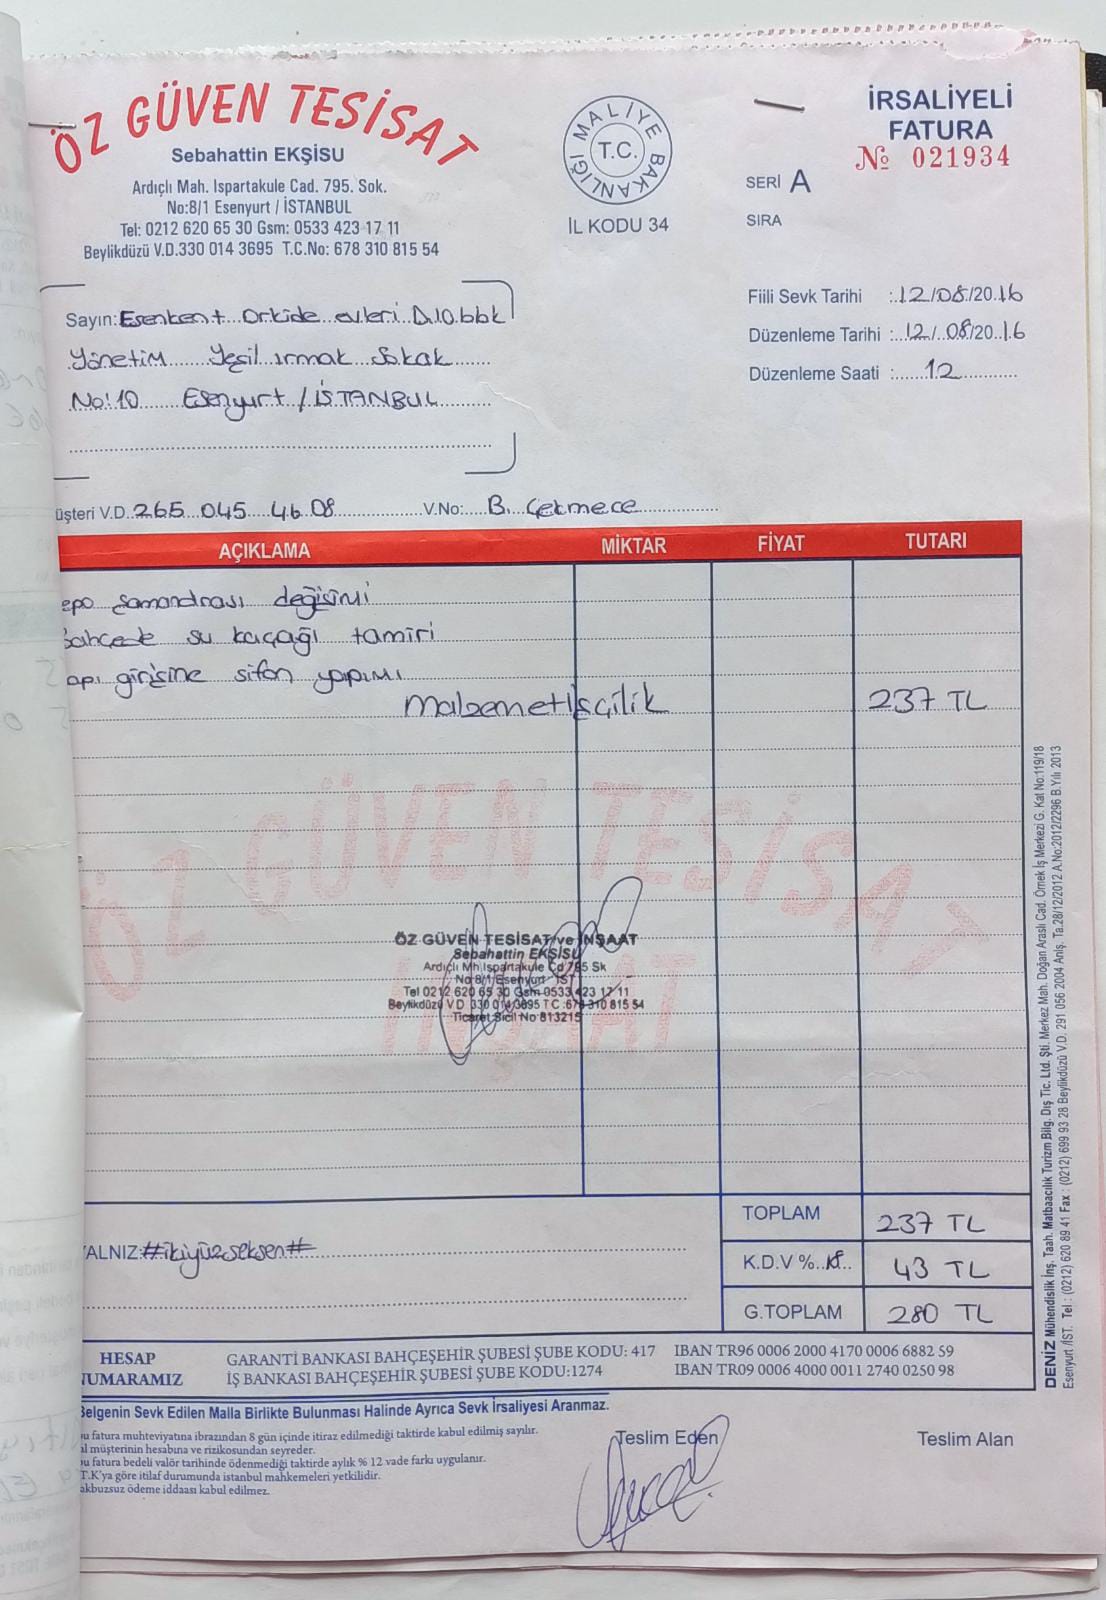 ÖZ GÜVEN TESİSAT
Sebahattin EKŞİSU
Ardıçlı Mah. Ispartakule Cad. 795. Sok.
No:8/1 Esenyurt / İSTANBUL
Tel: 0212 620 65 30 Gsm: 0533 423 17 11
Beylikdüzü V.D.330 014 3695 T.C.No: 678 310 815 54
MALİYE BAKANLIĞI
T.C.
İL KODU 34
İRSALİYELİ
FATURA
№ 021934
SERİ A
SIRA
Sayın: Esenkent Orkide evleri D.10.bbk
Yönetim Yeşil ırmak Sokak
No:10 Esenyurt / İSTANBUL
Fiili Sevk Tarihi :.12/08/2016
Düzenleme Tarihi :.12/.08/20.16
Düzenleme Saati :......12
üşteri V.D. 265 045 46 08 V.No:....B. Çekmece
AÇIKLAMA MİKTAR FİYAT TUTARI
epo şamandırası değişimi
bahçede su kaçağı tamiri
apı girişine sifon yapımı
Malzeme+işçilik 237 TL
ÖZ GÜVEN TESİSAT
İNŞAAT
ÖZ GÜVEN TESİSAT ve İNŞAAT
Sebahattin EKŞİSU
Ardıçlı Mh Ispartakule Cd 795 Sk
No 8/1 Esenyurt İST
Tel 0212 620 65 30 Gsm 0533 423 17 11
Beylikdüzü V D 330 014 3695 T C 678 310 815 54
Ticaret Sicil No 813215
TOPLAM 237 TL
YALNIZ:#ikiyüzseksen#
K.D.V %..18.. 43 TL
G.TOPLAM 280 TL
HESAP
NUMARAMIZ
GARANTİ BANKASI BAHÇEŞEHİR ŞUBESİ ŞUBE KODU: 417 IBAN TR96 0006 2000 4170 0006 6882 59
İŞ BANKASI BAHÇEŞEHİR ŞUBESİ ŞUBE KODU:1274 IBAN TR09 0006 4000 0011 2740 0250 98
Belgenin Sevk Edilen Malla Birlikte Bulunması Halinde Ayrıca Sevk İrsaliyesi Aranmaz.
bu fatura muhteviyatına ibrazından 8 gün içinde itiraz edilmediği taktirde kabul edilmiş sayılır.
al müşterinin hesabına ve rizikosundan seyreder.
bu fatura bedeli valör tarihinde ödenmediği taktirde aylık % 12 vade farkı uygulanır.
T.K'ya göre itilaf durumunda istanbul mahkemeleri yetkilidir.
akbuzsuz ödeme iddaası kabul edilmez.
Teslim Eden
Teslim Alan
DENİZ Mühendislik İnş. Taah. Matbaacılık Turizm Bilg. Dış Tic. Ltd. Şti. Merkez Mah. Doğan Araslı Cad. Örnek İş Merkezi G. Kat No:119/18
Esenyurt /İST. Tel : (0212) 620 89 41 Fax : (0212) 699 93 28 Beylikdüzü V.D. 291 056 2004 Anlş. Ta.28/12/2012 A.No:2012/2296 B.Yılı 2013